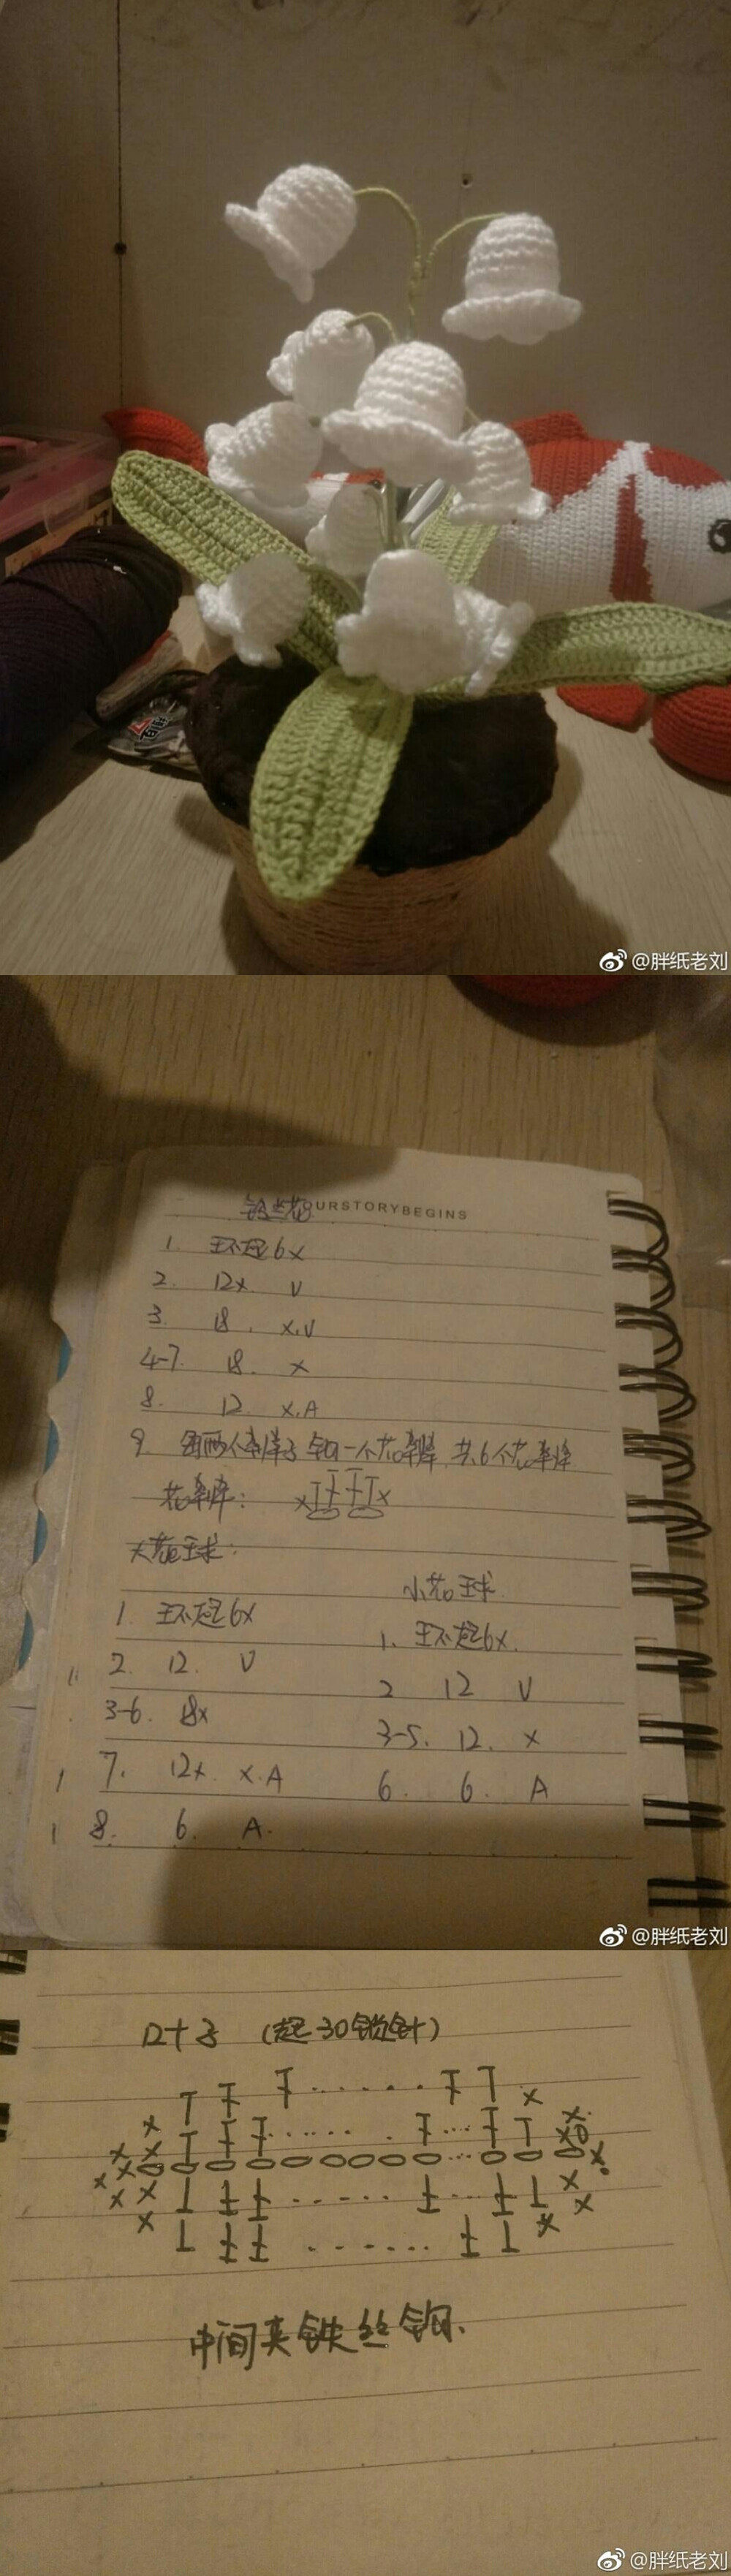 @胖纸老刘
铃兰花 OURSTORYBEGINS
1. 环起6x
2. 12x. V
3. 18. x.V
4-7. 18. x
8. 12. x.A
9. 每两个针 钩一个花瓣 共6个花瓣
花瓣:
大花球:
小花球.
1. 环起6x
1. 环起6x.
2. 12. V
2 12 V
3-6. 18x
3-5. 12. x
7. 12x. x.A
6. 6. A
8. 6. A.
@胖纸老刘
叶子 (起30锁针)
中间夹铁丝钩.
@胖纸老刘